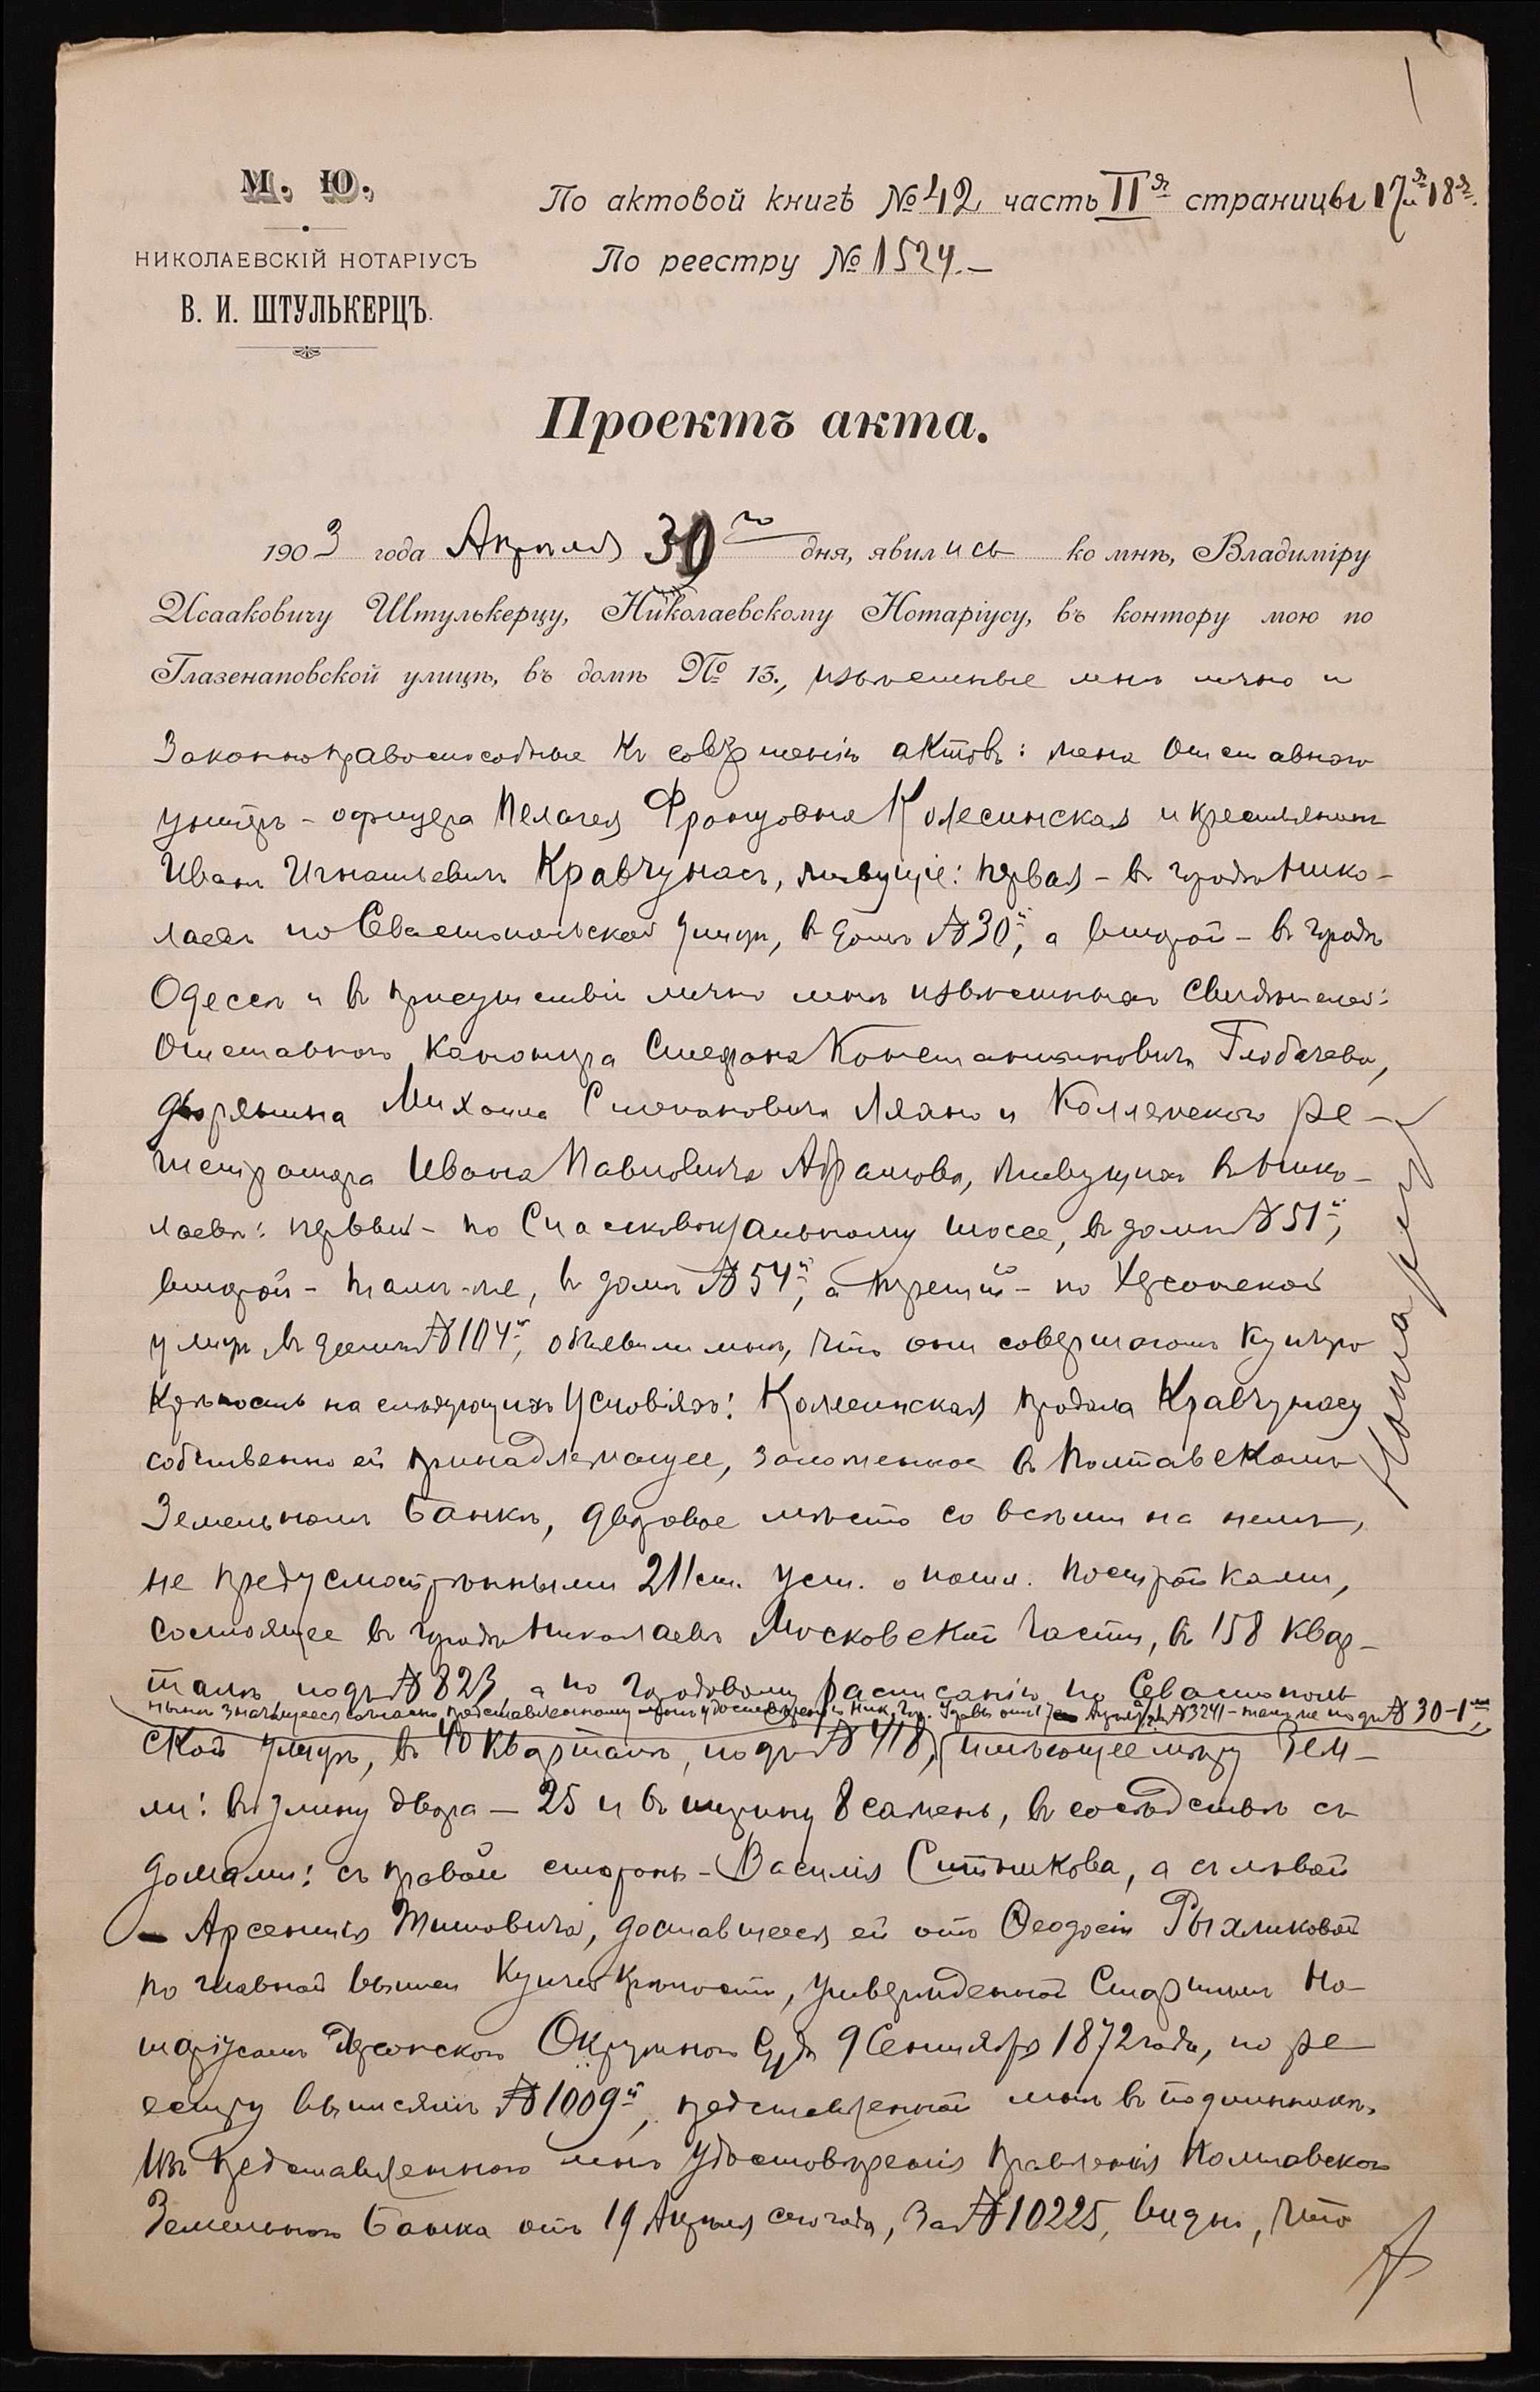 М. Ю.
НИКОЛАЕВСКІЙ НОТАРІУСЪ
В. И. ШТУЛЬКЕРЦЪ.
По актовой книгѣ № 42 часть IIя страницы 17я и 18я.
По реестру № 1524.—
Проектъ акта.
1903 года Апрѣля 30го дня, явились ко мнѣ, Владиміру
Исааковичу Штулькерцу, Николаевскому Нотаріусу, въ контору мою по
Глазенаповской улицѣ, въ домѣ № 13., извѣстные мнѣ лично и
законноправоспособные къ совершенію актовъ: жена отставного
унтеръ-офицера Пелагея Францовна Колесинская и крестьянинъ
Иванъ Игнатьевичъ Кравчунасъ, живущіе: первая – въ городѣ Нико-
лаевѣ по Севастопольской улицѣ, въ домѣ № 30й, а второй – въ городѣ
Одессѣ и въ присутствіи лично мнѣ извѣстныхъ свидѣтелей:
отставного канонира Стефана Константиновича Глобачева,
дворянина Михаила Степановича Ляхно и Коллежского ре-
гистратора Ивана Павловича Абрамова, живущихъ въ Нико-
лаевѣ: первый – по Спасскому шоссе, въ домѣ № 51й,
второй – тамъ-же, въ домѣ № 54й, а третій – по Херсонской
улицѣ, въ домѣ № 104й, объявили мнѣ, что они совершаютъ купчую
крѣпость на слѣдующихъ условіяхъ: Колесинская продала Кравчунасу
собственно ей принадлежащее, заложенное въ Полтавскомъ
Земельномъ Банкѣ, дворовое мѣсто со всѣми на немъ,
не предусмотрѣнными 211 ст. уст. о пошл. постройками,
состоящее въ городѣ Николаевѣ Московской части, въ 158 квар-
талѣ подъ № 823, а по городовому расписанію по Севастополь-
нынѣ значущееся согласно представленному мнѣ удостовѣренію Ник. Гор. Управы отъ Апрѣля № 3241 – тамъ же подъ № 30-1мъ,
ской улицѣ, въ 40 кварталѣ, подъ № 418, имѣющее мѣру зем-
ли: въ длину двора – 25 и въ ширину 8 сажень, въ сосѣдствѣ съ
домами: съ правой стороны – Василія Ситникова, а съ лѣвой
– Арсентія Тимовича, доставшееся ей отъ Ѳеодосіи Рыхликовой
по главной выписи купчей крѣпости, утвержденной Старшимъ Но-
таріусомъ Херсонского Окружного Суда 9 Сентября 1872 года, по ре-
естру выписямъ № 1009й, представленной мнѣ въ подлинникѣ.
Изъ представленного мнѣ удостовѣренія Правленія Полтавского
Земельного Банка отъ 19 Апрѣля сего года, за № 10225, видно, что
Нотаріусъ